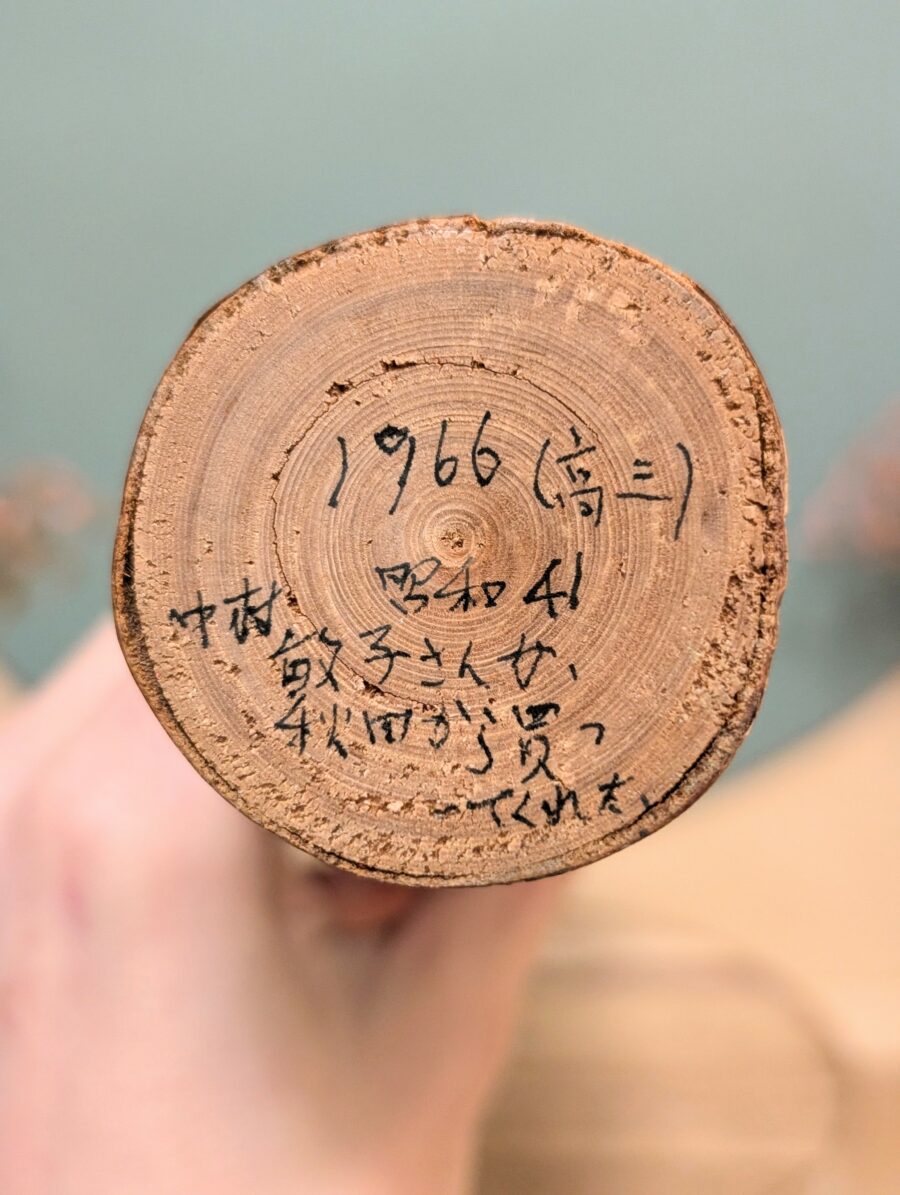 1966(高三)
昭和41
中村
敏子さんが、
秋田から買っ
てくれた。